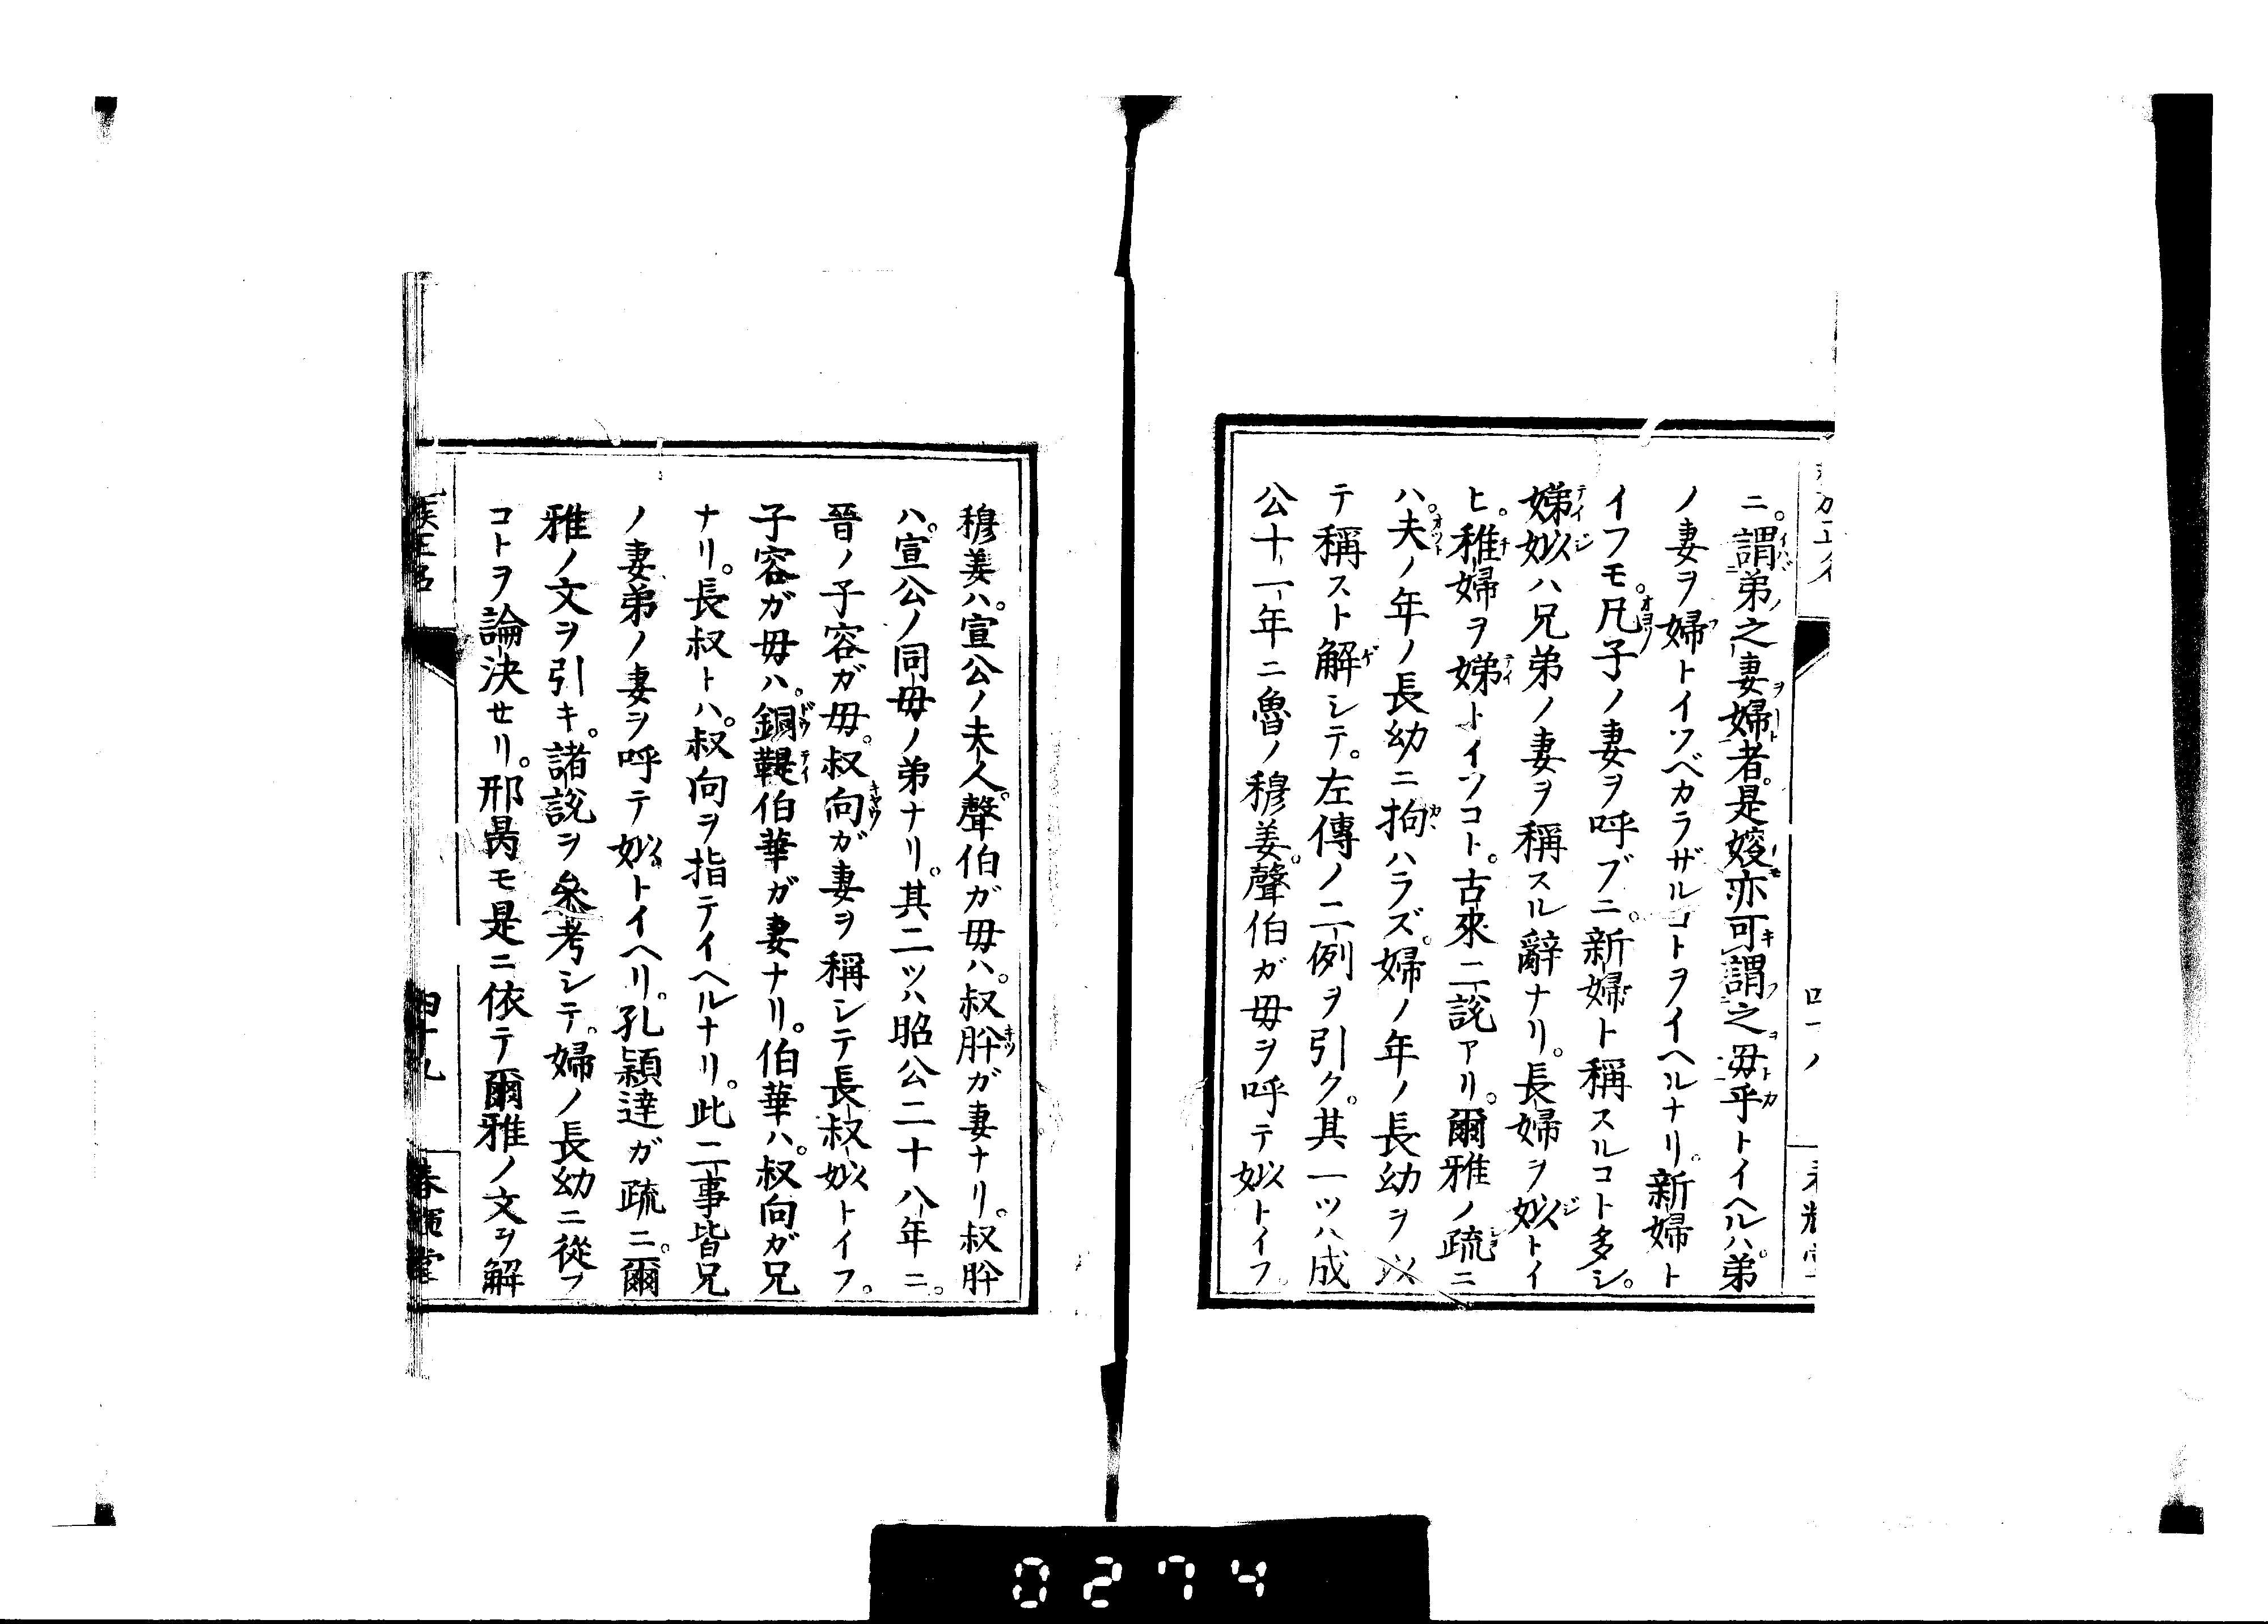 ニ。謂弟之妻婦者。是嫂亦可謂之毋乎トイヘルハ。弟
ノ妻ヲ婦トイツベカラザルコトヲイヘルナリ。新婦ト
イフモ。凡子ノ妻ヲ呼ブニ。新婦ト稱スルコト多シ。
娣姒ハ兄弟ノ妻ヲ稱スル辭ナリ。長婦ヲ姒トイ
ヒ。稚婦ヲ娣トイツコト。古來二説アリ。爾雅ノ疏ニ
ハ。夫ノ年ノ長幼ニ拘ハラズ。婦ノ年ノ長幼ヲ以
テ稱スト解シテ。左傳ノ二例ヲ引ク。其一ツハ成
公十一年ニ魯ノ穆姜。聲伯ガ毋ヲ呼テ姒トイフ。
穆姜ハ。宣公ノ夫人。聲伯ガ毋ハ。叔肸ガ妻ナリ。叔肸
ハ。宣公ノ同毋ノ弟ナリ。其二ツハ昭公二十八年ニ。
晉ノ子容ガ毋。叔向ガ妻ヲ稱シテ長叔姒トイフ。
子容ガ毋ハ。銅鞮伯華ガ妻ナリ。伯華ハ。叔向ガ兄
ナリ。長叔トハ。叔向ヲ指テイヘルナリ。此二事皆兄
ノ妻弟ノ妻ヲ呼テ姒トイヘリ。孔穎達ガ疏ニ。爾
雅ノ文ヲ引キ。諸説ヲ叅考シテ。婦ノ長幼ニ從フ
コトヲ論決せリ。邢昺モ是ニ依テ爾雅ノ文ヲ解
四十九
0274